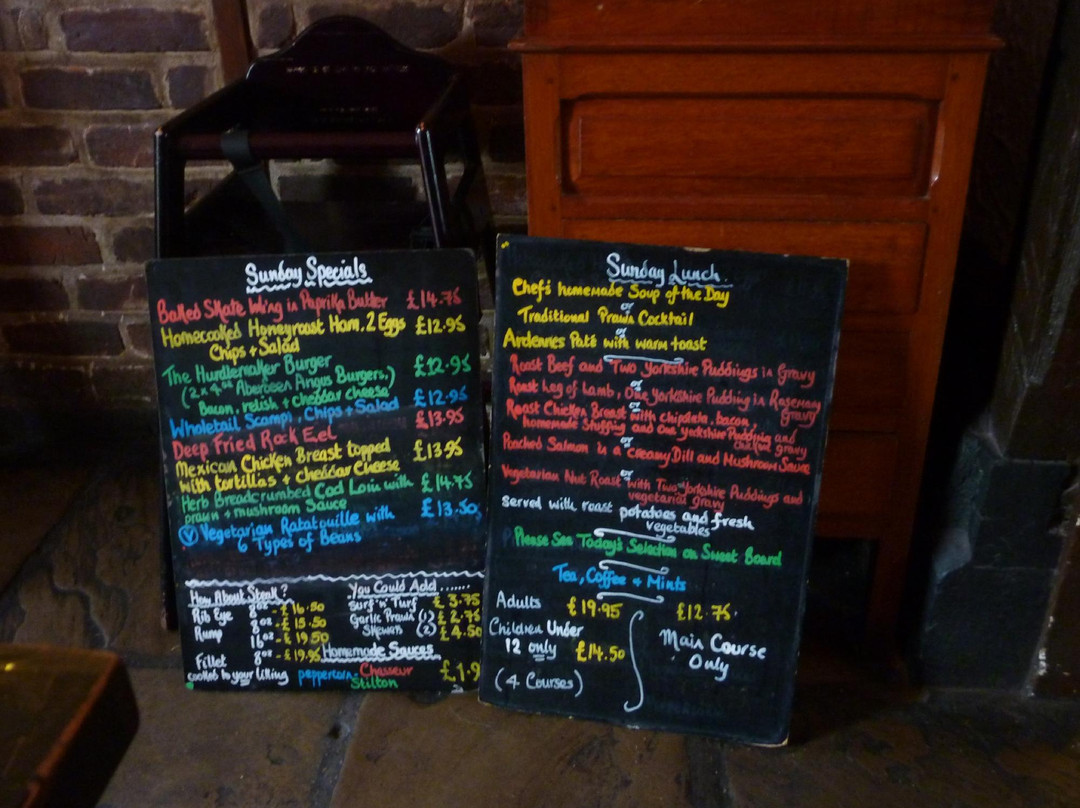 Sunday Specials
Baked Skate Wing in Paprika Butter £14.75
Homecooked Honeyroast Ham, 2 Eggs £12.95
Chips + Salad
The Hurdlemaker Burger £12.95
(2 x 4oz Aberdeen Angus Burgers,)
Bacon, relish + cheddar cheese
Wholetail Scampi, Chips + Salad £12.95
Deep Fried Rock Eel £13.95
Mexican Chicken Breast topped £13.95
with tortillas + cheddar cheese
Herb Breadcrumbed Cod Loin with £14.75
prawn + mushroom Sauce
V Vegetarian Ratatouille with £13.50
6 Types of Beans
How About Steak?
Rib Eye 8oz - £16.50
Rump 8oz - £15.50
16oz - £19.50
Fillet 8oz - £19.95
cooked to your liking
You Could Add ......
Surf 'n' Turf £3.75
Garlic Prawn (1) £2.75
Skewers (2) £4.50
Homemade Sauces
peppercorn, Chasseur £1.9
Stilton
Sunday Lunch
Chef's homemade Soup of the Day
or
Traditional Prawn Cocktail
or
Ardennes Paté with warm toast
Roast Beef and Two Yorkshire Puddings in Gravy
or
Roast Leg of Lamb, One Yorkshire Pudding in Rosemary
Gravy
or
Roast Chicken Breast with chipolata, bacon,
homemade Stuffing and One Yorkshire Pudding and
chicken gravy
or
Poached Salmon in a creamy Dill and Mushroom Sauce
or
Vegetarian Nut Roast with Two Yorkshire Puddings and
vegetarian gravy
Served with roast potatoes and fresh
vegetables
Please See Today's Selection on Sweet Board
Tea, Coffee + Mints
Adults £19.95
Children Under
12 only £14.50
(4 Courses)
£12.75.
Main Course
Only